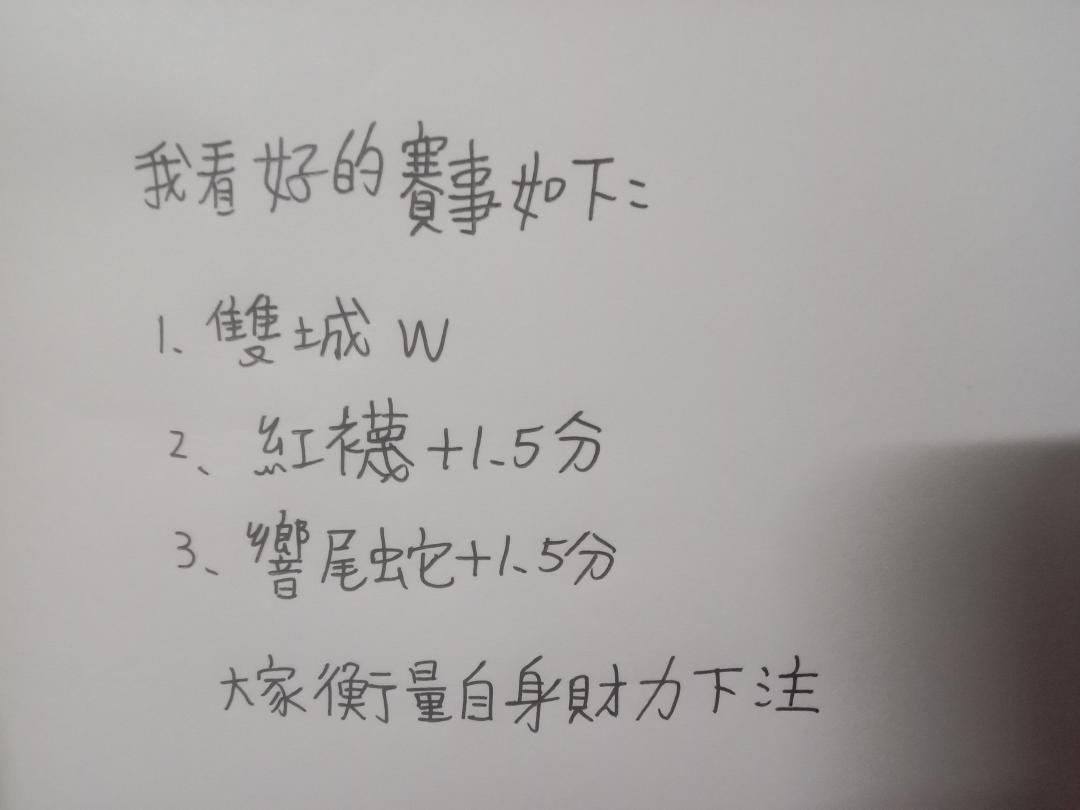 我看好的賽事如下：
1、雙城 W
2、紅襪+1.5分
3、響尾蛇+1.5分
大家衡量自身財力下注